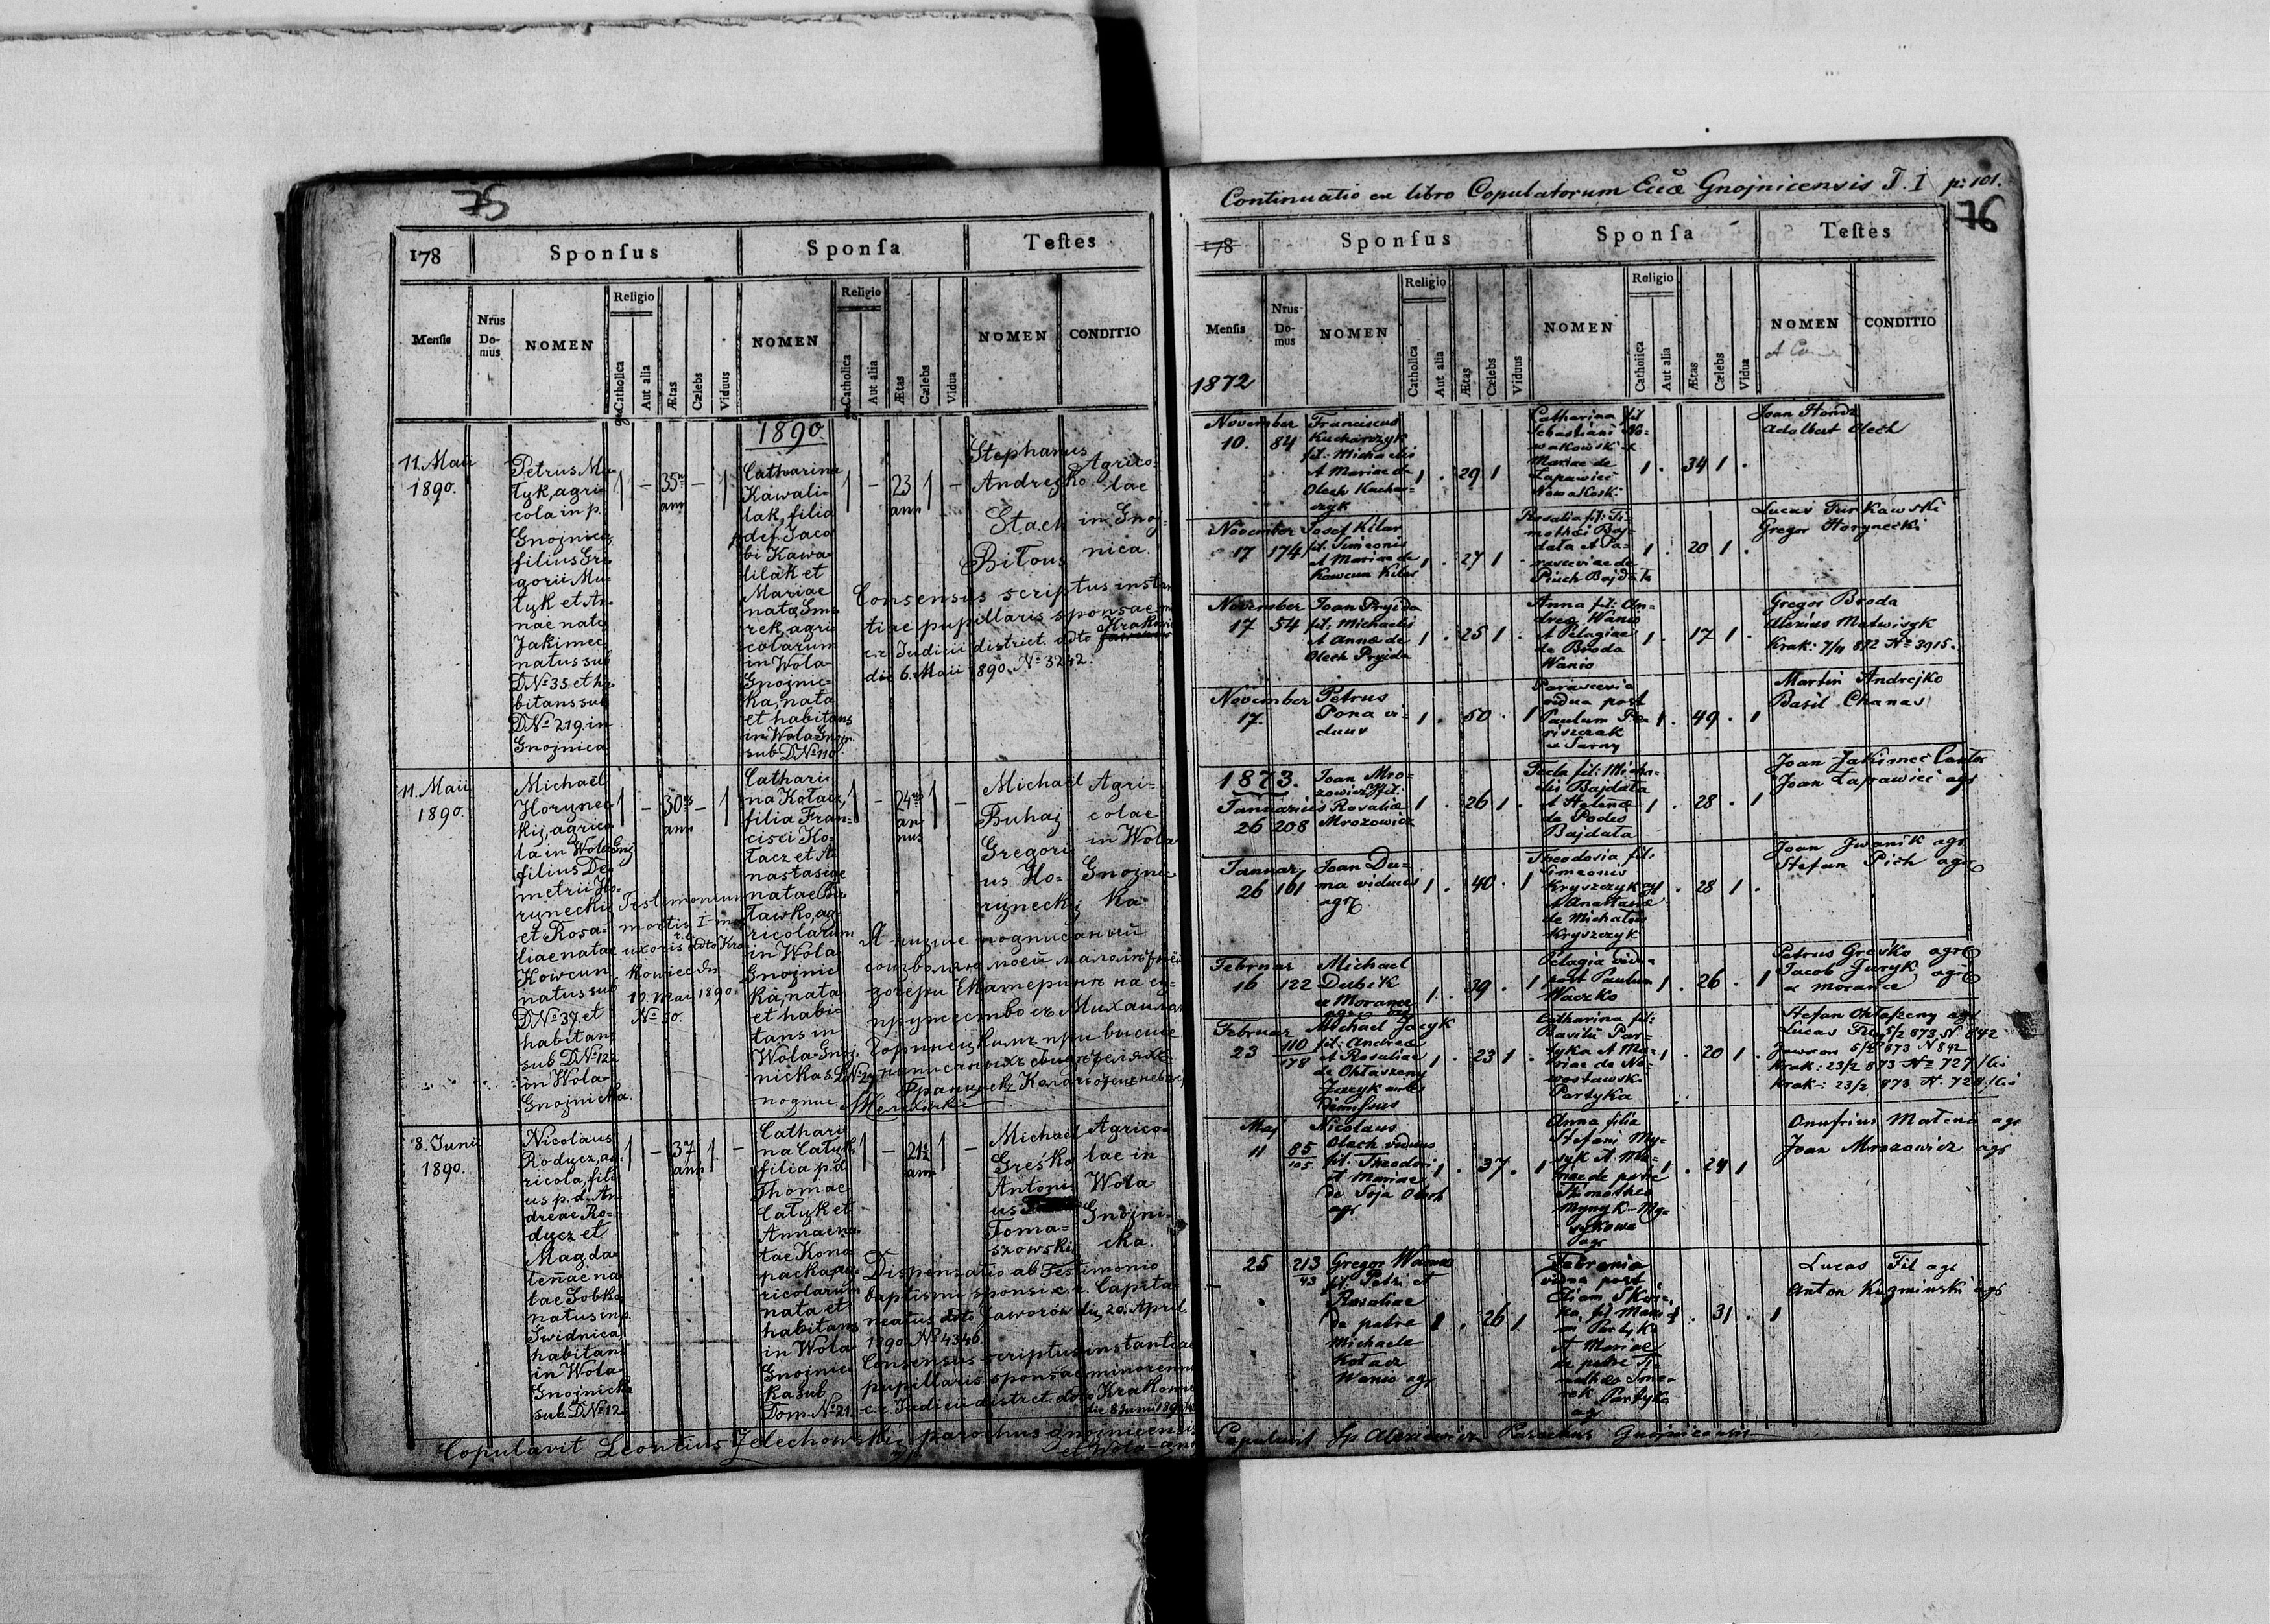 75
178
Sponsus
Sponsa
Testes
Mensis
Nrus Domus
NOMEN
Religio
Catholica
Aut alia
Ætas
Cælebs
Viduus
NOMEN
Religio
Catholica
Aut alia
Ætas
Cælebs
Vidua
NOMEN
CONDITIO
1890.
11. Maii
1890.
Petrus Mu-
tyk, agri-
cola in p.
Gnojnica,
filius Gre-
gorii Mu-
tyk et An-
nae nata
Jakimec
natus sub
DNº 35 et ha-
bitans sub
DNº 219. in
Gnojnica
1 – 35 ann – 1
Catharina
Kawali-
lak, filia
def. Jaco-
bi Kawa-
lilak et
Mariae
nata Smo-
rek, agri-
colarum
in Wola
Gnojnic-
ka, nata
et habitans
in Wola Gnojn.
sub DNº 110.
1 – 23 ann 1 –
Stephanus
Andrejko
Stach
Bilous
Agrico-
lae
in Gnoj-
nica.
Consensus scriptus instan-
tiae pupillaris sponsae
c.r. Judicii district. ddto Krakowiec
die 6. Maii 1890. Nº 3242.
11. Maii
1890.
Michael
Horynec-
kij, agrico-
la in Wola Gnoj.
filius De-
metrii Ho-
ryneckij
et Rosa-
liae natae
Kowcun
natus sub
DNº 37 et
habitans
sub DNº 12
in Wola-
Gnojnicka.
1 – 30 ann – 1
Testimonium
mortis I-mae
uxoris ddto Kra-
kowiec die
10. Mai 1890.
Nº 50.
Cathari-
na Kołacz,
filia Fran-
cisci Ko-
łacz et A-
nastasiae
natae Bu-
ławko, ag-
ricolarum
in Wola
Gnojnic-
ka, nata
et habi-
tans in
Wola Gnoj-
nicka s. DNº 29
1 – 24 an nus 1 –
Michael
Buhaj
Gregori-
us Ho-
ryneckij
Agri-
colae
in Wola
Gnojnic-
ka.
Я низше подписаный
соизволяю моей малолѣтней
дочери Екатеринѣ на су-
пружество съ Михаиломъ
Горинецкимъ при висше
написаныхъ свидѣтеляхъ
8. Junii
1890.
Nicolaus
Rodycz, ag-
ricola, fili-
us p.d. An-
dreae Ro-
dycz et
Magda-
lenae na-
tae Sobko,
natus in p.
Swidnica,
habitans
in Wola
Gnojnicka
sub DNº 12.
1 – 37 ann 1 –
Cathari-
na Całyk,
filia p.d.
Thomae
Całyk et
Annae na-
tae Kono-
packa, ag-
ricolarum
nata et
habitans
in Wola
Gnojnic-
ka sub
Dom. Nº 21.
1 – 21½ ann 1 –
Michael
Greśko
Antoni-
us
Toma-
szowski
Agrico-
lae in
Wola
Gnojni-
cka.
Dispensatio ab Testimonio
baptismi sponsi c.r. Capita-
neatus ddto Jaworów die 20. April.
1890. Nº 4346.
Consensus scriptus instantiae
pupillaris sponsae minorennis
c.r. Judicii district. ddto Krakowiec
die 8 Junii 1890
Copulavit Leontius Żelechowskij parochus gnojnicensis
et Wola-Gn
Continuatio ex libro Copulatorum Eccæ Gnojnicensis T. I p: 101.
76
178
Sponsus
Sponsa
Testes
Mensis
Nrus Domus
NOMEN
Religio
Catholica
Aut alia
Ætas
Cælebs
Viduus
NOMEN
Religio
Catholica
Aut alia
Ætas
Cælebs
Vidua
NOMEN
CONDITIO
1872
November
10. 84
Franciscus
Kucharczyk
fil. Michaelis
et Mariae de
Olech Kuchar-
czyk
1 . 29 1
Catharina fil
Sebastiani No-
wakowski et
Mariae de
Łapawiec
Nowakoski
1 . 34 1 .
Joan Hondz
Adalbert Olech
November
17 174
Josef Kilar
fil. Simeonis
et Mariae de
Kowcun Kilar
1 . 27 1
Rosalia fil: Ti-
mothei Baj-
data et Pa-
rasceviae de
Piuch Bajdata
1 . 20 1 .
Lucas Turkawski
Gregor Horynecki
November
17 54
Joan Pryjda
fil. Michaelis
et Annae de
Olech Pryjda
1 . 25 1
Anna fil: An-
dreae Wanio
et Pelagiae
de Broda
Wanio
1 . 17 1 .
Gregor Broda
Alexius Matwisyk
Krak: 7/11 872 Nº 3915.
November
17.
Petrus
Pona vi-
duus
1 . 50 . 1
Parascevia
vidua post
Paulum
1 . 49 . 1
Martin Andrejko
Basil Chanas
1873.
Januarius
26 208
Joan Mro-
zowicz fil.
Rosaliae
Mrozowicz
1 . 26 1
Tecla fil: Micha-
elis Bajdata
et Helenae
de Podes
Bajdata
1 . 28 . 1
Joan Jakimec Cantor
Joan Łapawiec agr
Januar
26 161
Joan Du-
ma viduus
agr
1 . 40 . 1
Theodosia fil:
Simeonis
Kryszczyk agr
et Anastasiae
de Michalu
Kryszczyk
1 . 28 1 .
Joan Jwanik agr
Stefan Pich agr
Februar
16 122
Michael
Dubik
ex Morance
1 . 39 . 1
Pelagia vidua
post Paulum
Waczko
1 . 26 . 1
Petrus Greśko agr
Jacob Juryk agr
ex Morance
Februar
23 110/178
Michael Jacyk
fil: Andreae
et Rosaliae
de Ohłaszeny
Jacyk
1 . 23 1 .
Catharina fil:
Basilii Par-
tyka et Ma-
riae de No-
wosławski
Partyka
1 . 20 1 .
Stefan Ohłaszeny agr
Lucas
Jaworow 5/2 873 N 842
Krak: 23/2 873 Nº 727/Cis
Krak: 23/2 873 N. 728/Cis
Maj
11 85/105
Nicolaus
Olech viduus
fil. Theodori
et Mariae
de Soja Olech
agr
1 . 37 . 1
Anna filia
Stefani My-
1 . 24 1
Onufrius Matena agr
Joan Mrozowicz agr
25 213/43
Gregor Wanio
fil. Petri et
Rosaliae
de patre
Michaele
Kołacz
Wanio agr
1 . 26 1
Febronia
vidua post
1 . 31 . 1
Lucas Fil agr
Anton Kuzminski agr
Copulavit Alexiewicz Parochus Gnojnicensis